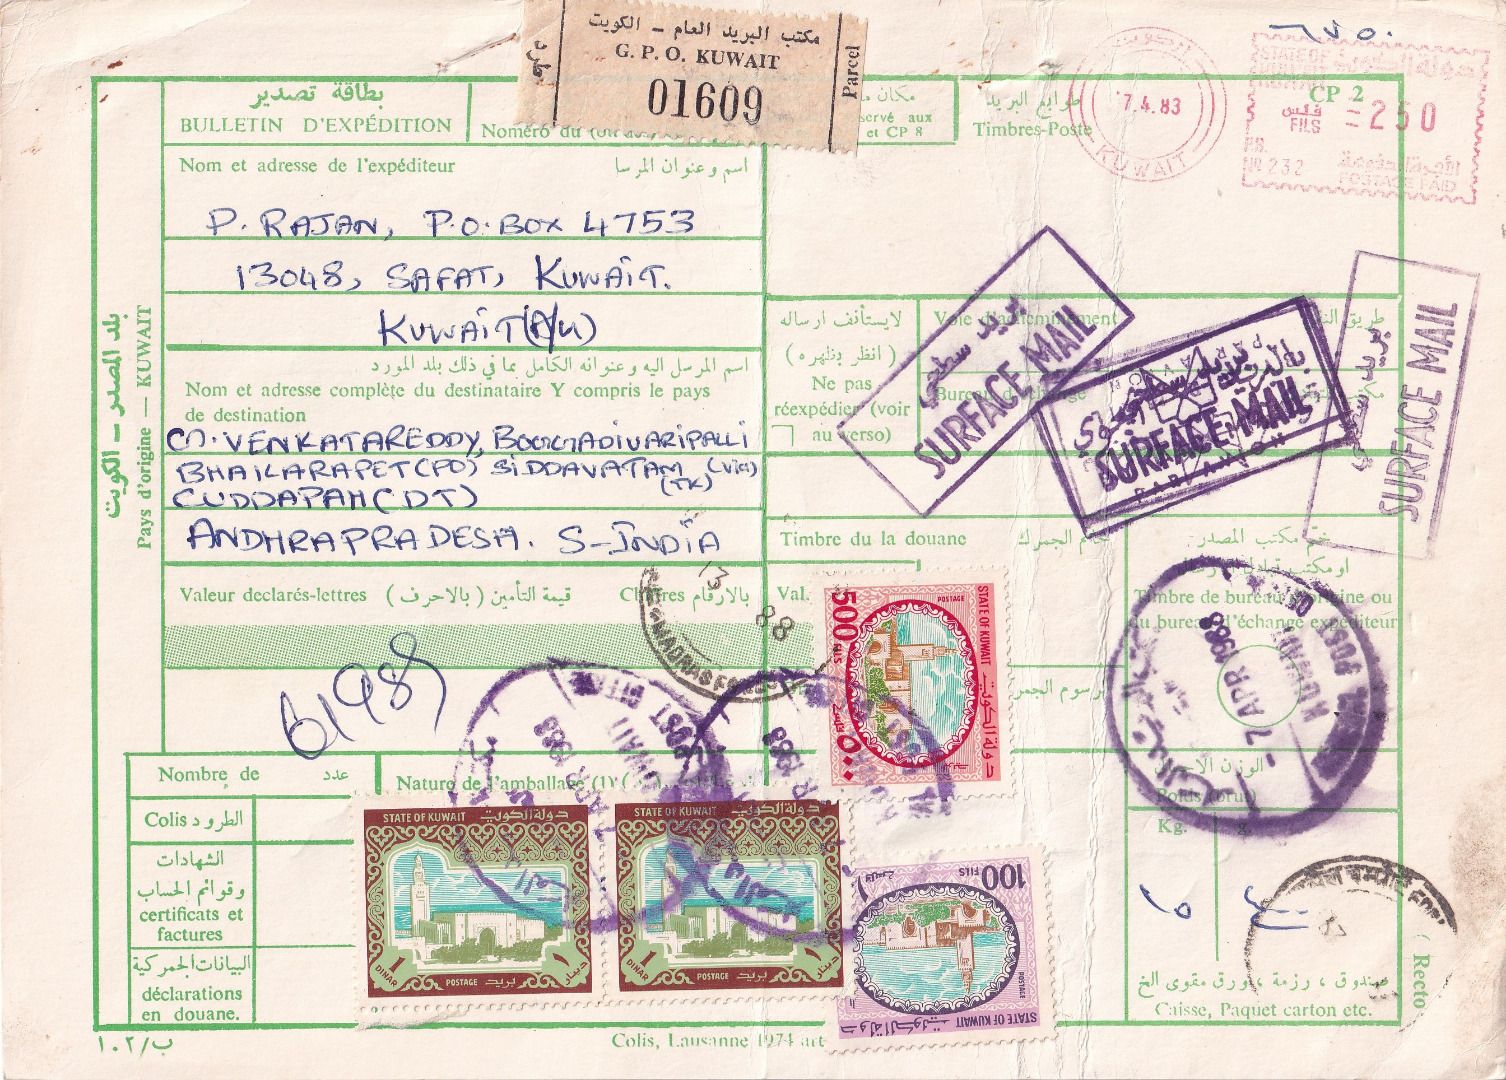 مكتب البريد العام – الكويت
G. P. O. KUWAIT
01609
طرد
Parcel
٦٧٥٠
KUWAIT
7.4.83
STATE OF KUWAIT
دولة الكويت
فلس
FILS
250
P.B.
Nº 232
الأجرة المدفوعة
POSTAGE PAID
CP 2
بطاقة تصدير
BULLETIN D'EXPÉDITION
Numéro du
مكان
et CP 8
طوابع البريد
Timbres-Poste
Nom et adresse de l'expéditeur
اسم وعنوان المرسا
P. RAJAN, P.O. BOX 4753
13048, SAFAT, KUWAIT.
KUWAIT (A/G)
بلد المصدر – الكويت
Pays d'origine — KUWAIT
اسم المرسل اليه وعنوانه الكامل بما في ذلك بلد المورد
Nom et adresse complète du destinataire Y compris le pays
de destination
M. VENKATAREDDY, BOMMADIVARIPALLI
BHAKARAPET (PO) SIDDAVATAM (VIA)
(TK)
CUDDAPAH (DT)
ANDHRA PRADESH. S-INDIA
لايستأنف ارساله
( انظر بظهره )
Ne pas
réexpédier (voir
au verso)
Voie d'acheminement
طريق
Bureau d'échange
بريد سطحي
SURFACE MAIL
بريد سطحي
SURFACE MAIL
بريد سطحي
SURFACE MAIL
Timbre du la douane
ختم الجمرك
ختم مكتب المصدر
او مكتب تبادل
Timbre de bureau d'origine ou
du bureau d'échange expéditeur
7 APR 1988
KUWAIT
POST
Valeur declarés-lettres
قيمة التأمين ( بالاحرف )
Chiffres بالارقام
Val.
13
88
MADRAS
61989
رسوم الجمر
500 FILS
POSTAGE
STATE OF KUWAIT
دولة الكويت
٥٠٠ فلس
بريد
Nombre de
عدد
Nature de l'emballage (1)
Colis الطرود
الشهادات
وقوائم الحساب
certificats et
factures
البيانات الجمركية
déclarations
en douane.
STATE OF KUWAIT دولة الكويت
1 DINAR
POSTAGE بريد
١ دينار
STATE OF KUWAIT دولة الكويت
1 DINAR
POSTAGE بريد
١ دينار
100 FILS
POSTAGE
STATE OF KUWAIT
دولة الكويت
١٠٠ فلس
الوزن
Poids (brut)
Kg.
g.
صندوق ، رزمة ، ورق مقوى الخ
Caisse, Paquet carton etc.
Recto
١٠٢/ب
Colis, Lausanne 1974 art